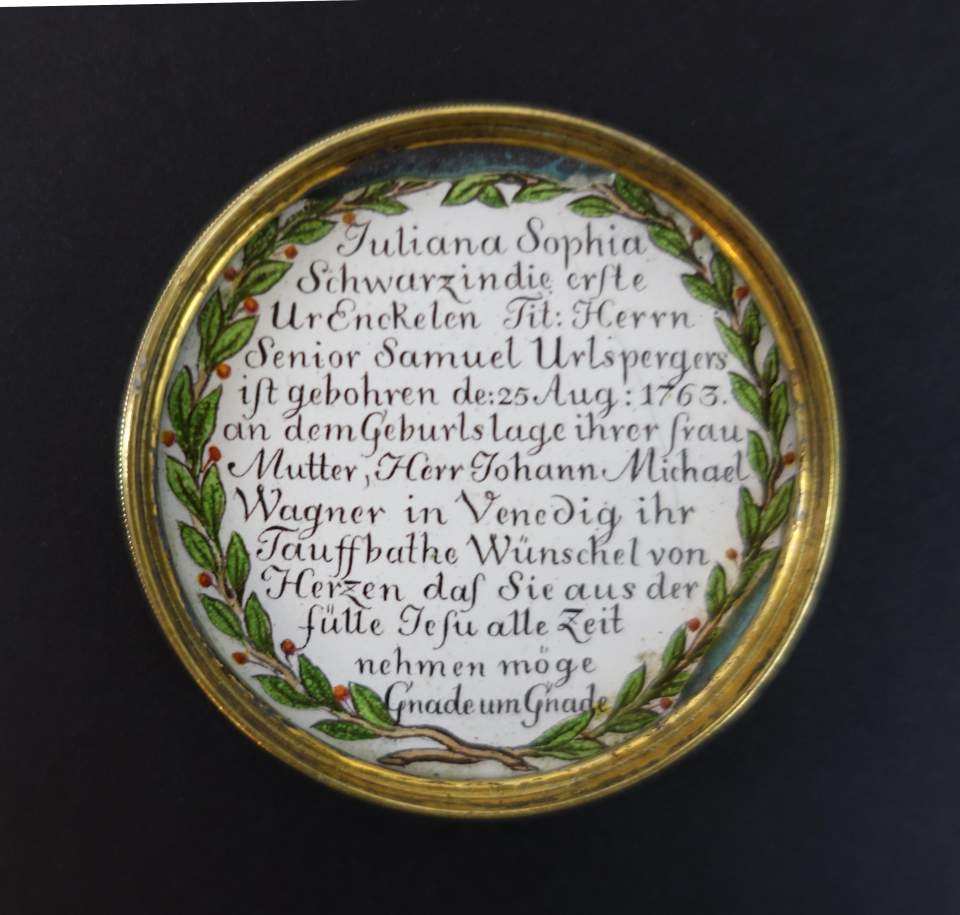 Juliana Sophia
Schwarzin die erſte
UrEnckelen Tit: Herrn
Senior Samuel Urlspergers
iſt gebohren de: 25 Aug: 1763.
an dem Geburtstage ihrer frau
Mutter, Herr Johann Michael
Wagner in Venedig ihr
Tauffbathe Wünschet von
Herzen daſ Sie aus der
fülle Jeſu alle Zeit
nehmen möge
Gnade um Gnade